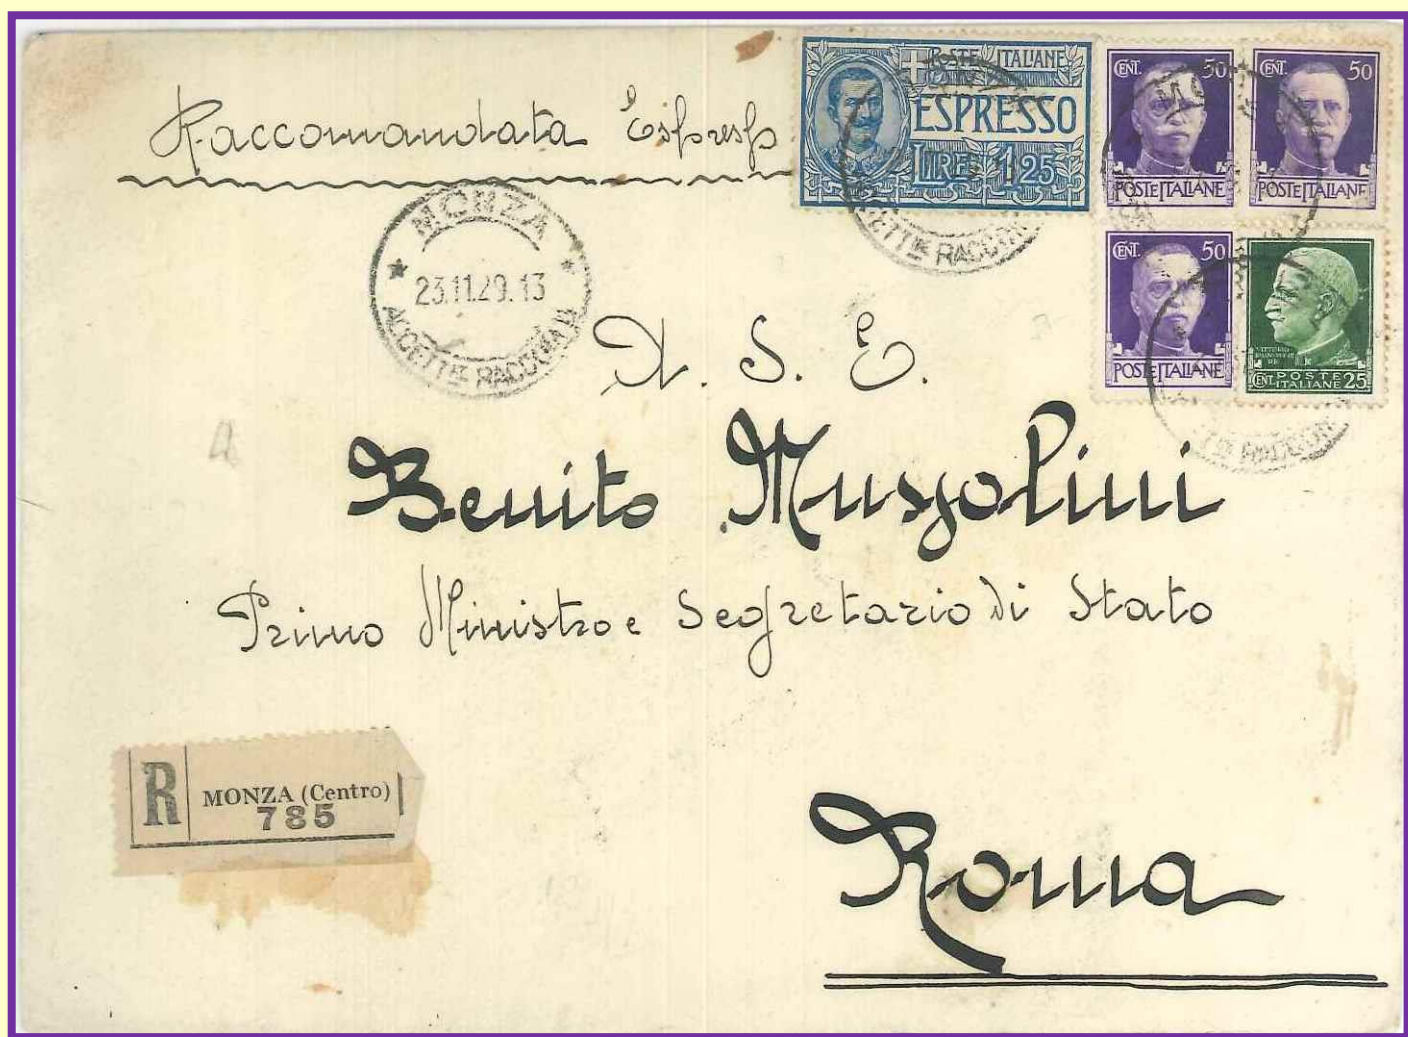 Raccomandata Espresso
POSTE ITALIANE
ESPRESSO
LIRE 1,25
CENT. 50
POSTE ITALIANE
CENT. 50
POSTE ITALIANE
CENT. 50
POSTE ITALIANE
VITTORIO
EMANUELE III
RE
CENT. POSTE ITALIANE 25
MONZA
23.11.29.13
A. S. E.
Benito Mussolini
Primo Ministro e Segretario di Stato
R
MONZA (Centro)
785
Roma